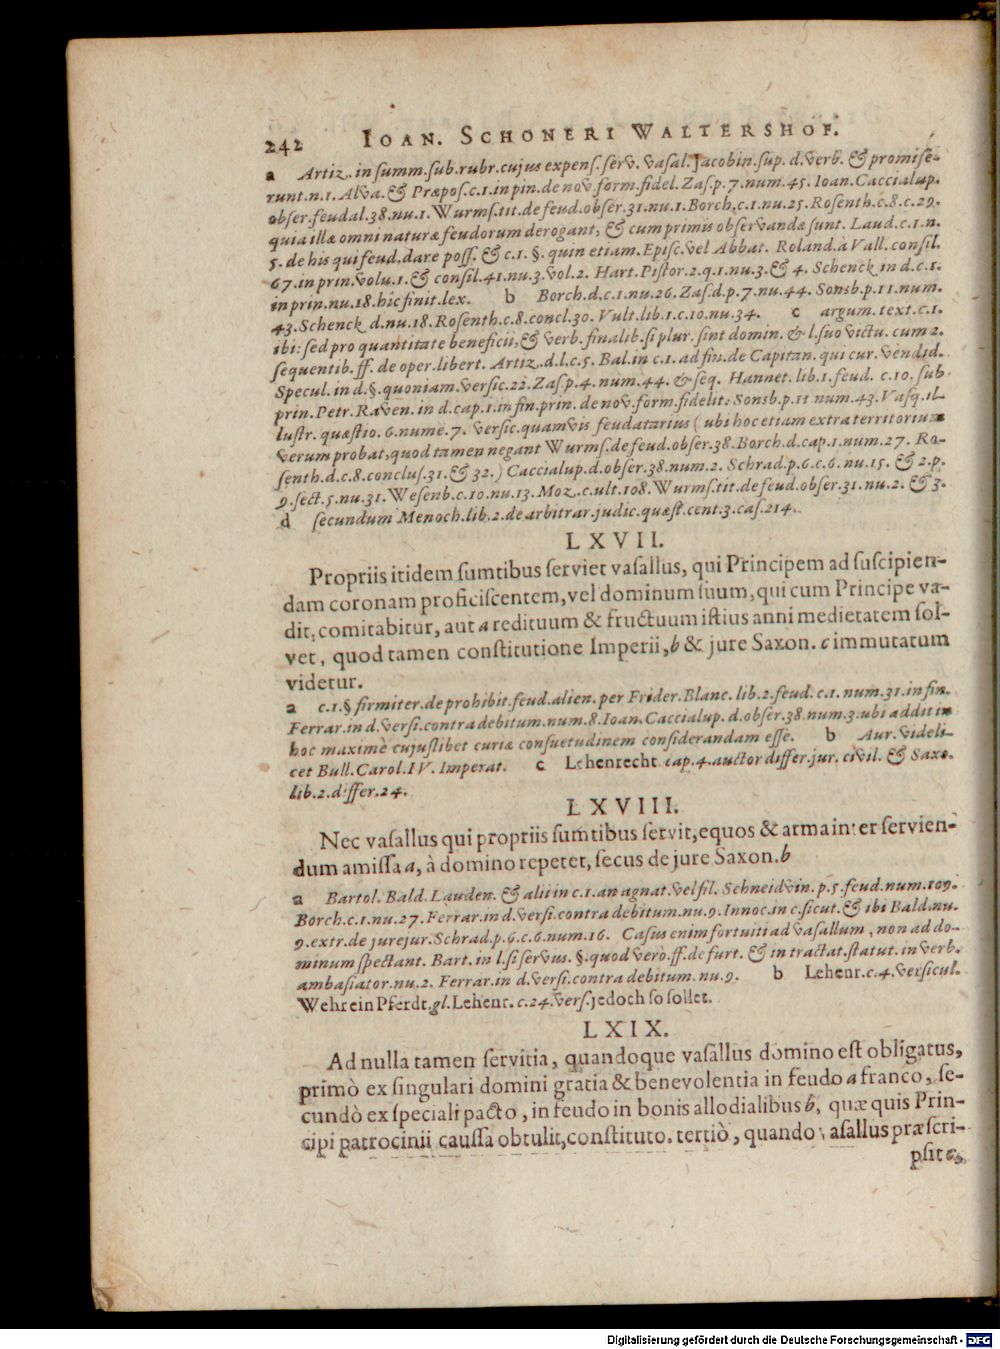 242 IOAN. SCHONERI WALTERSHOF.
a Artiz. in ſumm. ſub. rubr. cujus expenſ. ſerv. vaſal. Jacobin. ſup. d. verb. & promiſe-
runt. n. 1. Alva. & Præpoſ. c. 1. in pin. de nov. form. fidel. Zaſ. p. 7. num. 45. Ioan. Caccialup.
obſer. feudal. 38. nu. 1. Wurmſ. tit. de feud. obſer. 31. nu. 1. Borch. c. 1. nu. 25. Roſenth. c. 8. c. 29.
quia illæ omni naturæ feudorum derogant, & cum primis obſervandæ ſunt. Laud. c. 1. n.
5. de his qui feud. dare poſſ. & c. 1. §. quin etiam. Epiſc. vel Abbat. Roland. à Vall. conſil.
67. in prin. volu. 1. & conſil. 41. nu. 3. vol. 2. Hart. Piſtor. 2. q. 1. nu. 3. & 4. Schenck in d. c. 1.
in prin. nu. 18. hîc finit. lex. b Borch. d. c. 1. nu. 26. Zaſ. d. p. 7. nu. 44. Sonsb. p. 11. num.
43. Schenck d. nu. 18. Roſenth. c. 8. concl. 30. Vult. lib. 1. c. 10. nu. 34. c argum. text. c. 1.
ibi: ſed pro quantitate beneficii, & verb. finalib. ſi plur. ſint domin. & l. ſuo victu. cum 2.
ſequentib. ff. de oper. libert. Artiz. d. l. c. 5. Bal. in c. 1. ad fin. de Capitan. qui cur. vendid.
Specul. in d. §. quoniam. verſic. 22. Zaſ. p. 4. num. 44. & ſeq. Hannet. lib. 1. feud. c. 10. ſub
prin. Petr. Raven. in d. cap. 1. in fin. prin. de nov. form. fidelit: Sonsb. p. 11 num. 43. Vaſq. il-
luſtr. quæſtio. 6. nume. 7. verſic. quamvis feudatarius (ubi hoc etiam extra territorium
verum probat, quod tamen negant Wurmſ. de feud. obſer. 38. Borch. d. cap. 1. num. 27. Ro-
ſenth. d. c. 8. concluſ. 31. & 32.) Caccialup. d. obſer. 38. num. 2. Schrad. p. 6. c. 6. nu. 15. & 2. p.
9. ſect. 5. nu. 31. Weſenb. c. 10. nu. 13. Moz. c. ult. 108. Wurmſ. tit. de feud. obſer. 31. nu. 2. & 3.
d ſecundum Menoch. lib. 2. de arbitrar. judic. quæſt. cent. 3. caſ. 214.
LXVII.
Propriis itidem ſumtibus ſerviet vaſallus, qui Principem ad ſuſcipien-
dam coronam proficiſcentem, vel dominum ſuum, qui cum Principe va-
dit, comitabitur, aut a redituum & fructuum iſtius anni medietatem ſol-
vet, quod tamen conſtitutione Imperii, b & jure Saxon. c immutatum
videtur.
a c. 1. § firmiter. de prohibit. feud. alien. per Frider. Blanc. lib. 2. feud. c. 1. num. 31. in fin.
Ferrar. in d. verſi. contra debitum. num. 8. Ioan. Caccialup. d. obſer. 38. num. 3. ubi addit in
hoc maximè cujuſlibet curiæ conſuetudinem conſiderandam eſſe. b Aur. videli-
cet Bull. Carol. IV. Imperat. c Lehenrecht cap. 4. auctor differ. jur. civil. & Saxo.
lib. 2. differ. 24.
LXVIII.
Nec vaſallus qui propriis ſumtibus ſervit, equos & arma inter ſervien-
dum amiſſa a, à domino repetet, ſecus de jure Saxon. b
a Bartol. Bald. Lauden. & alii in c. 1. an agnat. vel fil. Schneidvin. p. 5. feud. num. 109.
Borch. c. 1. nu. 27. Ferrar. in d. verſi. contra debitum. nu. 9. Innoc. in c. ſicut. & ibi Bald. nu.
9. extr. de jurejur. Schrad. p. 6. c. 6. num. 16. Caſus enim fortuiti ad vaſallum, non ad do-
minum ſpectant. Bart. in l. ſi ſervus. §. quod verò. ff. de furt. & in tractat. ſtatut. in verb.
ambaſiator. nu. 2. Ferrar. in d. verſi. contra debitum. nu. 9. b Lehenr. c. 4. verſicul.
Wehr ein Pferdt. gl. Lehenr. c. 24. verſ. jedoch ſo ſollet.
LXIX.
Ad nulla tamen ſervitia, quandoque vaſallus domino eſt obligatus,
primò ex ſingulari domini gratia & benevolentia in feudo a franco, ſe-
cundò ex ſpeciali pacto, in feudo in bonis allodialibus b, quæ quis Prin-
cipi patrocinii cauſſa obtulit, conſtituto. tertiò, quando vaſallus præſcri-
pſit c,
Digitalisierung gefördert durch die Deutsche Forschungsgemeinschaft - DFG